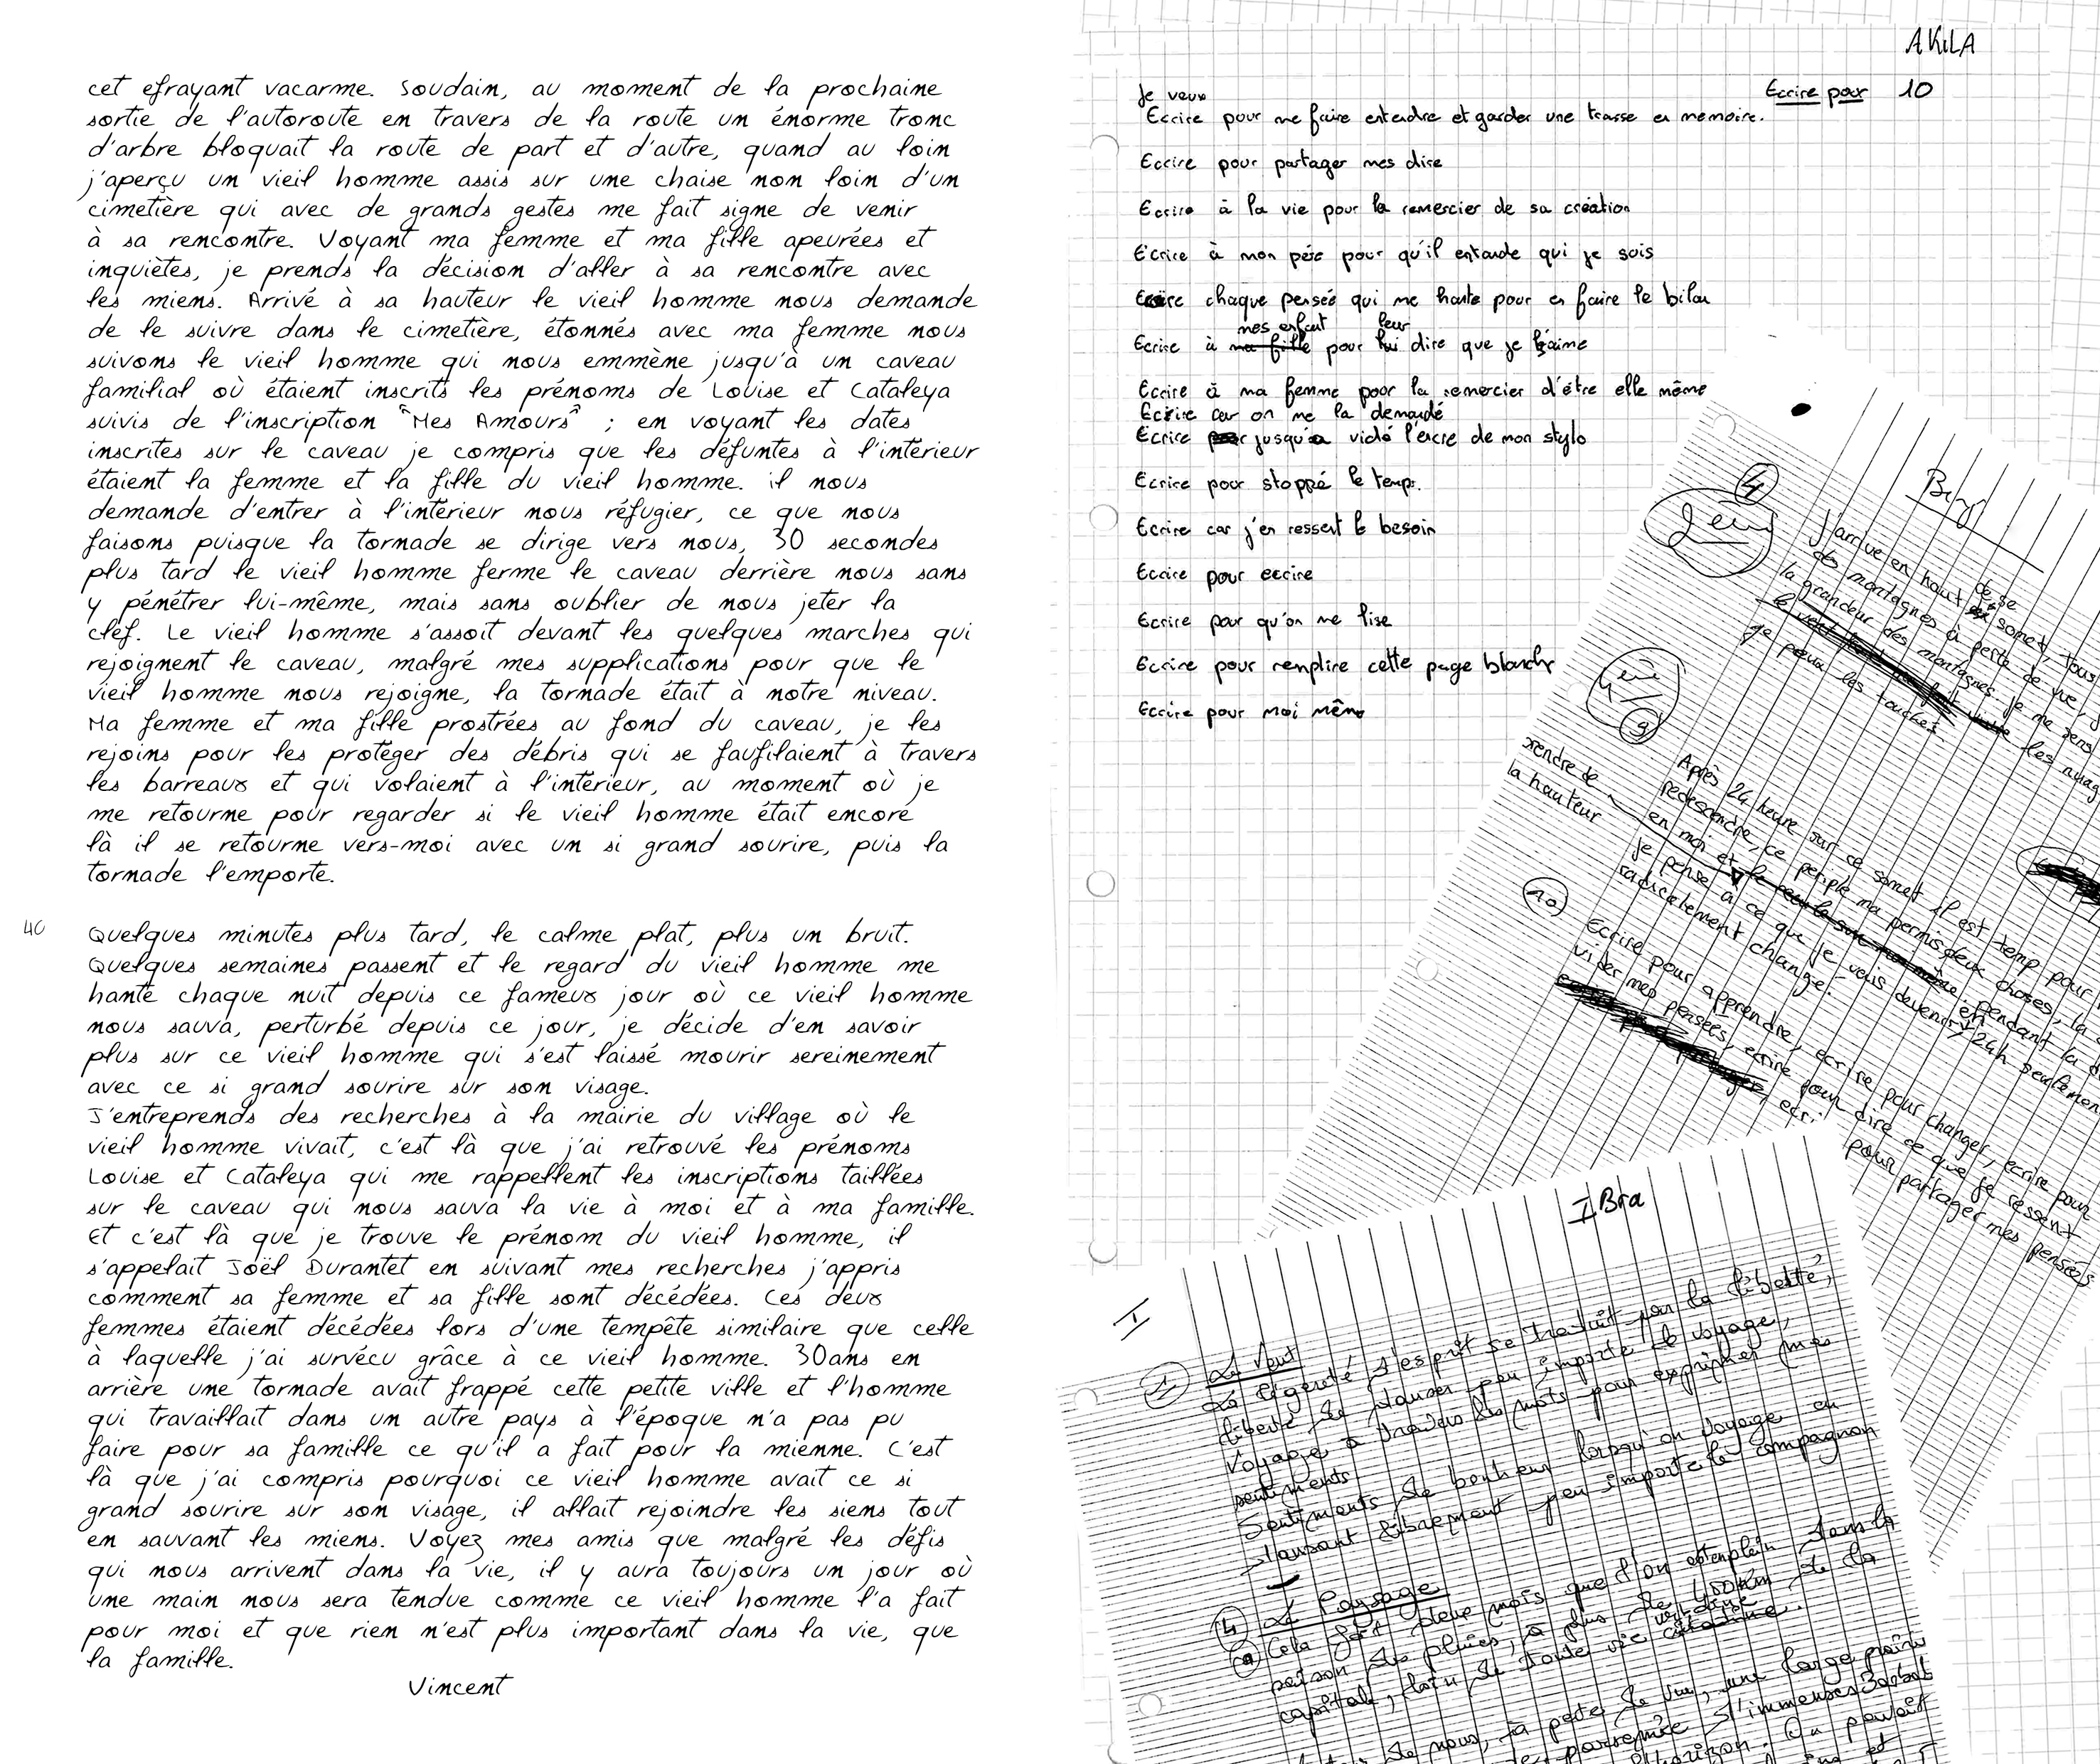 cet efrayant vacarme. Soudain, au moment de la prochaine
sortie de l'autoroute en travers de la route un énorme tronc
d'arbre bloquait la route de part et d'autre, quand au loin
j'aperçu un vieil homme assis sur une chaise non loin d'un
cimetière qui avec de grands gestes me fait signe de venir
à sa rencontre. Voyant ma femme et ma fille apeurées et
inquiètes, je prends la décision d'aller à sa rencontre avec
les miens. Arrivé à sa hauteur le vieil homme nous demande
de le suivre dans le cimetière, étonnés avec ma femme nous
suivons le vieil homme qui nous emmène jusqu'à un caveau
familial où étaient inscrits les prénoms de Louise et Cataleya
suivis de l'inscription "Mes Amours" ; en voyant les dates
inscrites sur le caveau je compris que les défuntes à l'intérieur
étaient la femme et la fille du vieil homme. il nous
demande d'entrer à l'intérieur nous réfugier, ce que nous
faisons puisque la tornade se dirige vers nous, 30 secondes
plus tard le vieil homme ferme le caveau derrière nous sans
y pénétrer lui-même, mais sans oublier de nous jeter la
clef. Le vieil homme s'assoit devant les quelques marches qui
rejoignent le caveau, malgré mes supplications pour que le
vieil homme nous rejoigne, la tornade était à notre niveau.
Ma femme et ma fille prostrées au fond du caveau, je les
rejoins pour les protéger des débris qui se faufilaient à travers
les barreaux et qui volaient à l'intérieur, au moment où je
me retourne pour regarder si le vieil homme était encore
là il se retourne vers-moi avec un si grand sourire, puis la
tornade l'emporte.
40
Quelques minutes plus tard, le calme plat, plus un bruit.
Quelques semaines passent et le regard du vieil homme me
hante chaque nuit depuis ce fameux jour où ce vieil homme
nous sauva, perturbé depuis ce jour, je décide d'en savoir
plus sur ce vieil homme qui s'est laissé mourir sereinement
avec ce si grand sourire sur son visage.
J'entreprends des recherches à la mairie du village où le
vieil homme vivait, c'est là que j'ai retrouvé les prénoms
Louise et Cataleya qui me rappellent les inscriptions taillées
sur le caveau qui nous sauva la vie à moi et à ma famille.
Et c'est là que je trouve le prénom du vieil homme, il
s'appelait Joël Durantet en suivant mes recherches j'appris
comment sa femme et sa fille sont décédées. Ces deux
femmes étaient décédées lors d'une tempête similaire que celle
à laquelle j'ai survécu grâce à ce vieil homme. 30ans en
arrière une tornade avait frappé cette petite ville et l'homme
qui travaillait dans un autre pays à l'époque n'a pas pu
faire pour sa famille ce qu'il a fait pour la mienne. C'est
là que j'ai compris pourquoi ce vieil homme avait ce si
grand sourire sur son visage, il allait rejoindre les siens tout
en sauvant les miens. Voyez mes amis que malgré les défis
qui nous arrivent dans la vie, il y aura toujours un jour où
une main nous sera tendue comme ce vieil homme l'a fait
pour moi et que rien n'est plus important dans la vie, que
la famille.
Vincent
AKILA
Ecrire pour 10
Je veux
Ecrire pour me faire entendre et garder une trasse en memoire.
Ecrire pour partager mes dire
Ecrire à la vie pour la remercier de sa création
Ecrire à mon père pour qu'il entende qui je suis
Ecrire chaque pensée qui me hante pour en faire le bilan
mes enfant leur
Ecrire à ma fille pour lui dire que je l'aime
Ecrire à ma femme pour la remercier d'être elle même
Ecrire car on me la demandé
Ecrire jusqu'a vidé l'encre de mon stylo
Ecrire pour stoppé le temps.
Ecrire car j'en ressent le besoin
Ecrire pour ecrire
Ecrire pour qu'on me lise
Ecrire pour remplire cette page blanche
Ecrire pour moi même
4
J'arrive en haut de se somet, tous
des montagnes à perte de vue, j
la grandeur des montagnes je me sens
les nuag
je peux les toucher.
9
Après 24 heure sur ce somet il est temp pour
redescendre, ce periple ma permis deux choses, la
rendre de
la hauteur
en moi et
pendant la
je pense à ce que je vais devenir, en 24h seulement
radicalement changé.
10
Ecrire pour apprendre, ecrire pour changer, ecrire pour
vider mes pensées, ecrire pour dire ce que je ressent
ecri pour partager mes pensées
IBra
I
1 Le Vent
La légereté d'esprit se traduit par la liberté,
liberté de danser peu importe le voyage,
Voyage à travers les mots pour exprimer mes
sentiments
Sentiments de bonheur lorsqu'on voyage en
dansant librement peu importe le compagnon
4 Le Paysage
Cela fait deux mois que l'on est en plein dans la
saison des pluies, à plus de 400km de la
capitale, loin de toute vie citadine.
de nous, à perte de vue, une large prairie
parsemée d'immenses Baobab
horizon. On pouvait